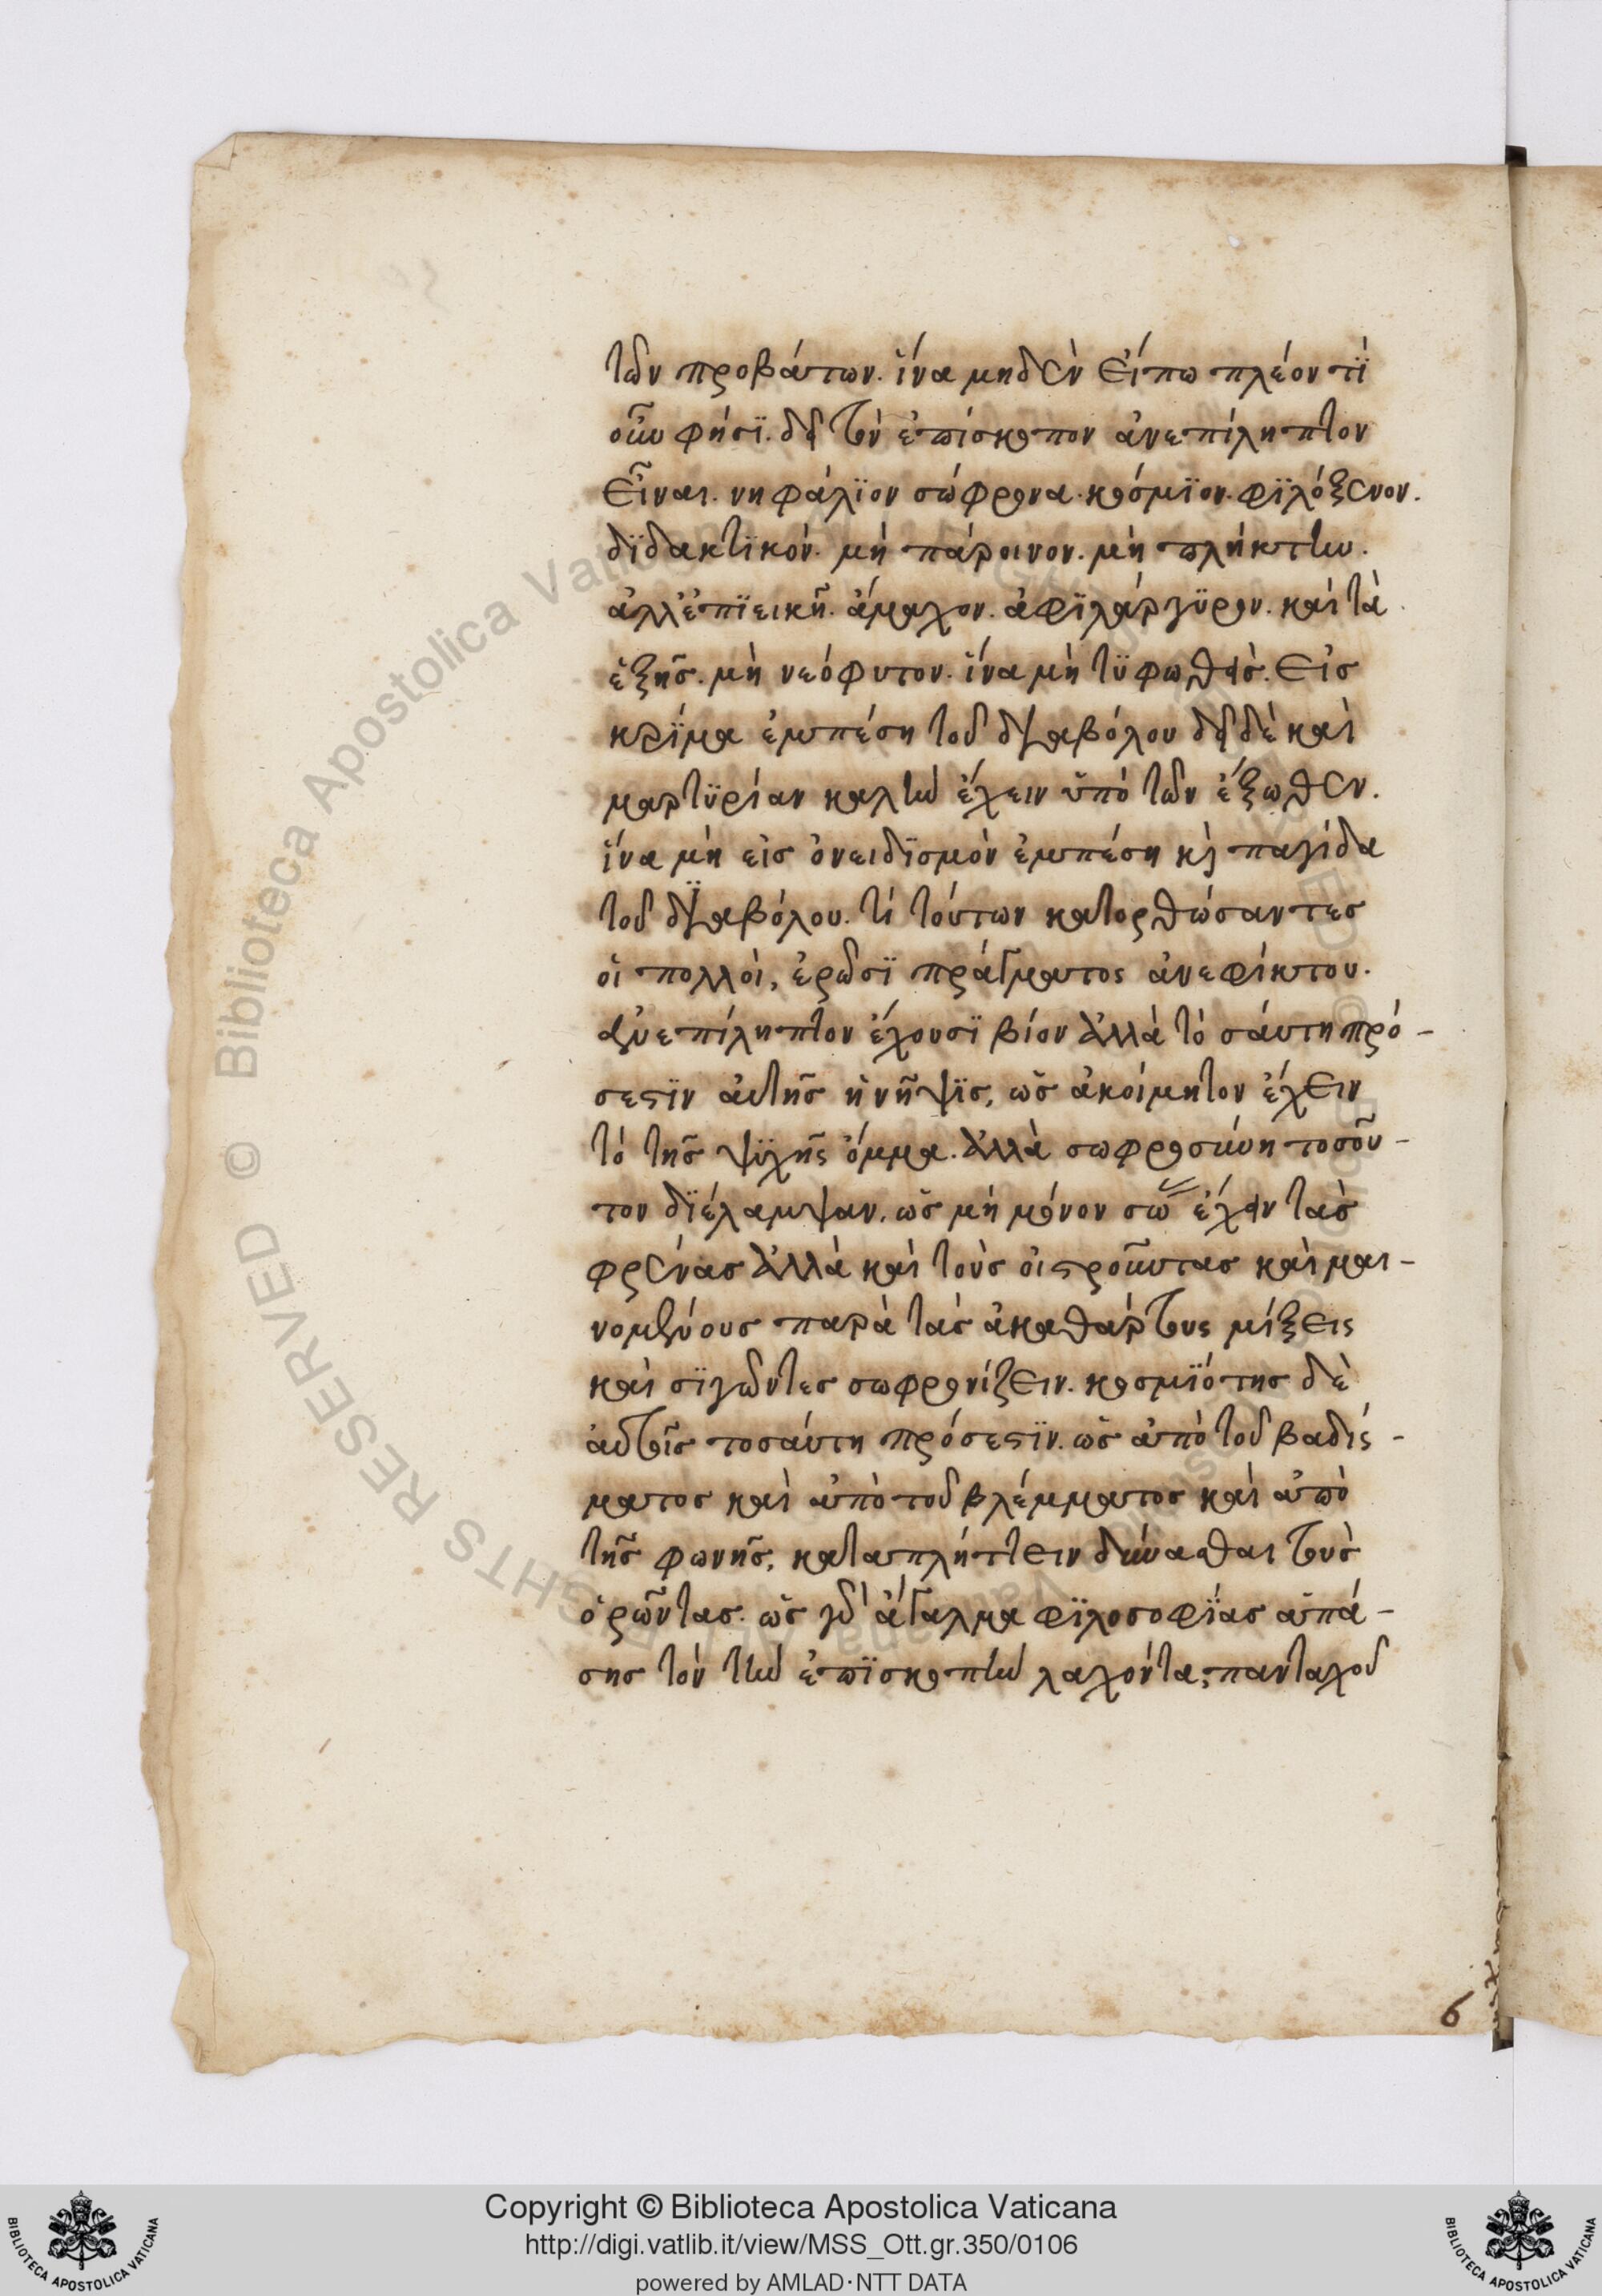 τῶν προβάτων. ἵνα μηδὲν εἴπω πλέον τὶ
οὖν φήσϊ. δεῖ τὸν ἐπίσκοπον ἀνεπίληπτον
εἶναι. νηφάλϊον σώφρονα. κόσμϊον. φϊλόξενον.
δϊδακτϊκόν. μὴ πάροινον. μὴ πλήκτην.
ἀλλ' ἐπϊεικῆ. ἄμαχον. ἀφϊλάργϋρον. καὶ τὰ
ἑξῆς. μὴ νεόφυτον. ἵνα μὴ τϋφωθεὶς. εἰς
κρϊμα ἐμπέση τοῦ δϊαβόλου δεῖ δὲ καὶ
μαρτϋρίαν καλὴν ἔχειν ὑπὸ τῶν ἔξωθεν.
ἵνα μὴ εἰς ὀνειδϊσμὸν ἐμπέση κὶ παγίδα
τοῦ δϊαβόλου. τί τούτων κατορθώσαντες
οἱ πολλοὶ, ἐρῶσϊ πράγματος ἀνεφίκτου.
ἀνεπίληπτον ἔχουσϊ βίον ἀλλὰ τὸσάυτη πρό-
σεστϊν ἀυτῆς ἡ νῆψϊς, ὡς ἀκοίμητον ἔχειν
τὸ τῆς ψϋχῆς ὄμμα. ἀλλὰ σωφροσύνη τοσοῦ-
τον δϊέλαμψαν, ὡς μὴ μόνον σώ ἔχειν τὰς
φρένας ἀλλὰ καὶ τοὺς οἰστροῦντας καὶ μαι-
νομένους παρὰ τὰς ἀκαθάρτους μίξεις
καὶ σϊγῶντες σωφρονίζειν. κοσμϊότης δὲ
ἀυτοῖς τοσάυτη πρόσεστϊν. ὡς ἀπὸ τοῦ βαδίς-
ματος καὶ ἀπὸ τοῦ βλέμματος καὶ ἀπὸ
τῆς φωνῆς, καταπλήττειν δύνασθαι τοὺς
ὁρῶντας. ὡς γὰρ ἄγαλμα φϊλοσοφϊας ἁπά-
σης τὸν τὴν ἐπϊσκοπὴν λαχόντα, πανταχοῦ
6
Copyright © Biblioteca Apostolica Vaticana
http://digi.vatlib.it/view/MSS_Ott.gr.350/0106
powered by AMLAD·NTT DATA